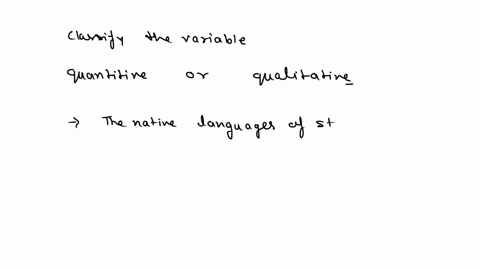 Classify the variable
quantitive or qualitative
→ The native languages of st